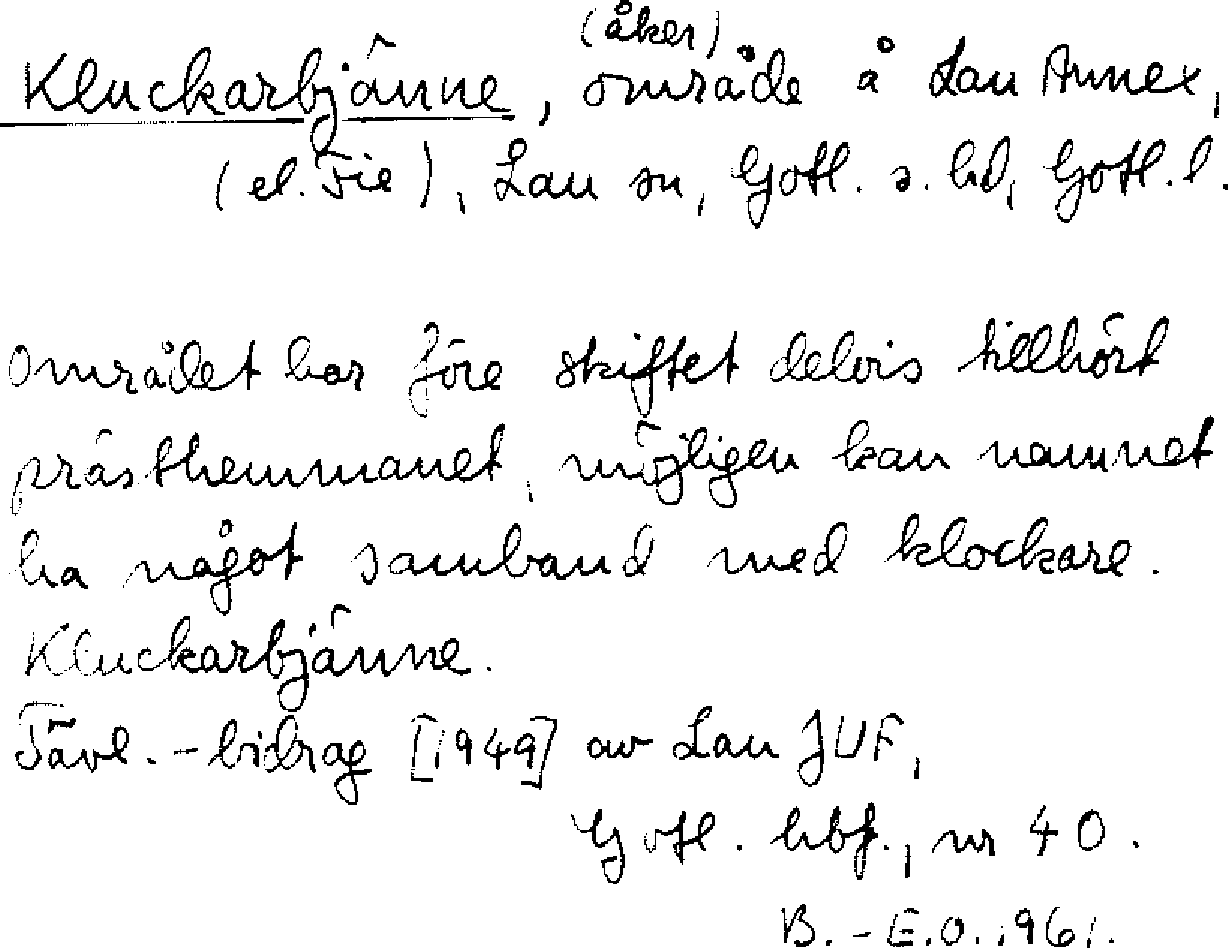 (åker)
Kluckarbjänne, område å Lau Annex,
(el. Fie), Lau sn, Gotl. s. hd, Gotl. l.
Området har före skiftet delvis tillhört
prästhemmanet, möjligen kan namnet
ha något samband med klockare.
Kluckarbjänne.
Tävl. - bidrag [1949] av Lau JUF,
Gotl. hbf., nr 40.
B. - E.O. 1961.